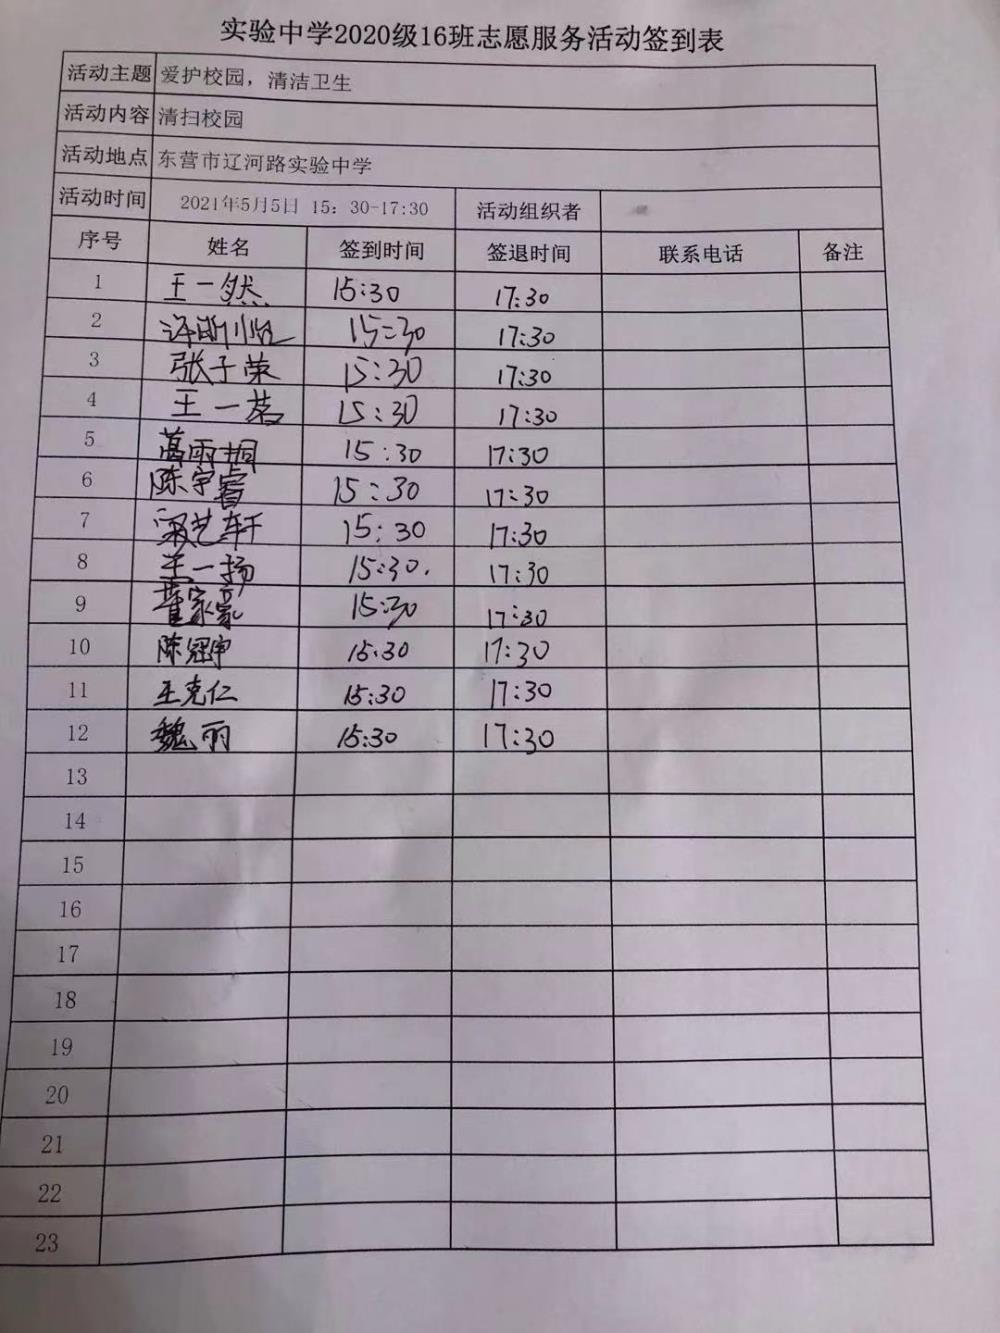 实验中学2020级16班志愿服务活动签到表
活动主题 爱护校园，清洁卫生
活动内容 清扫校园
活动地点 东营市辽河路实验中学
活动时间 2021年5月5日 15：30-17:30 活动组织者
序号 姓名 签到时间 签退时间 联系电话 备注
1 王一然 15:30 17:30
2 15:30 17:30
3 张子荣 15:30 17:30
4 王一茗 15:30 17:30
5 葛雨桐 15:30 17:30
6 陈宇睿 15:30 17:30
7 艺轩 15:30 17:30
8 王一扬 15:30. 17:30
9 家豪 15:30 17:30
10 陈冠宇 15:30 17:30
11 王克仁 15:30 17:30
12 魏丽 15:30 17:30
13
14
15
16
17
18
19
20
21
22
23